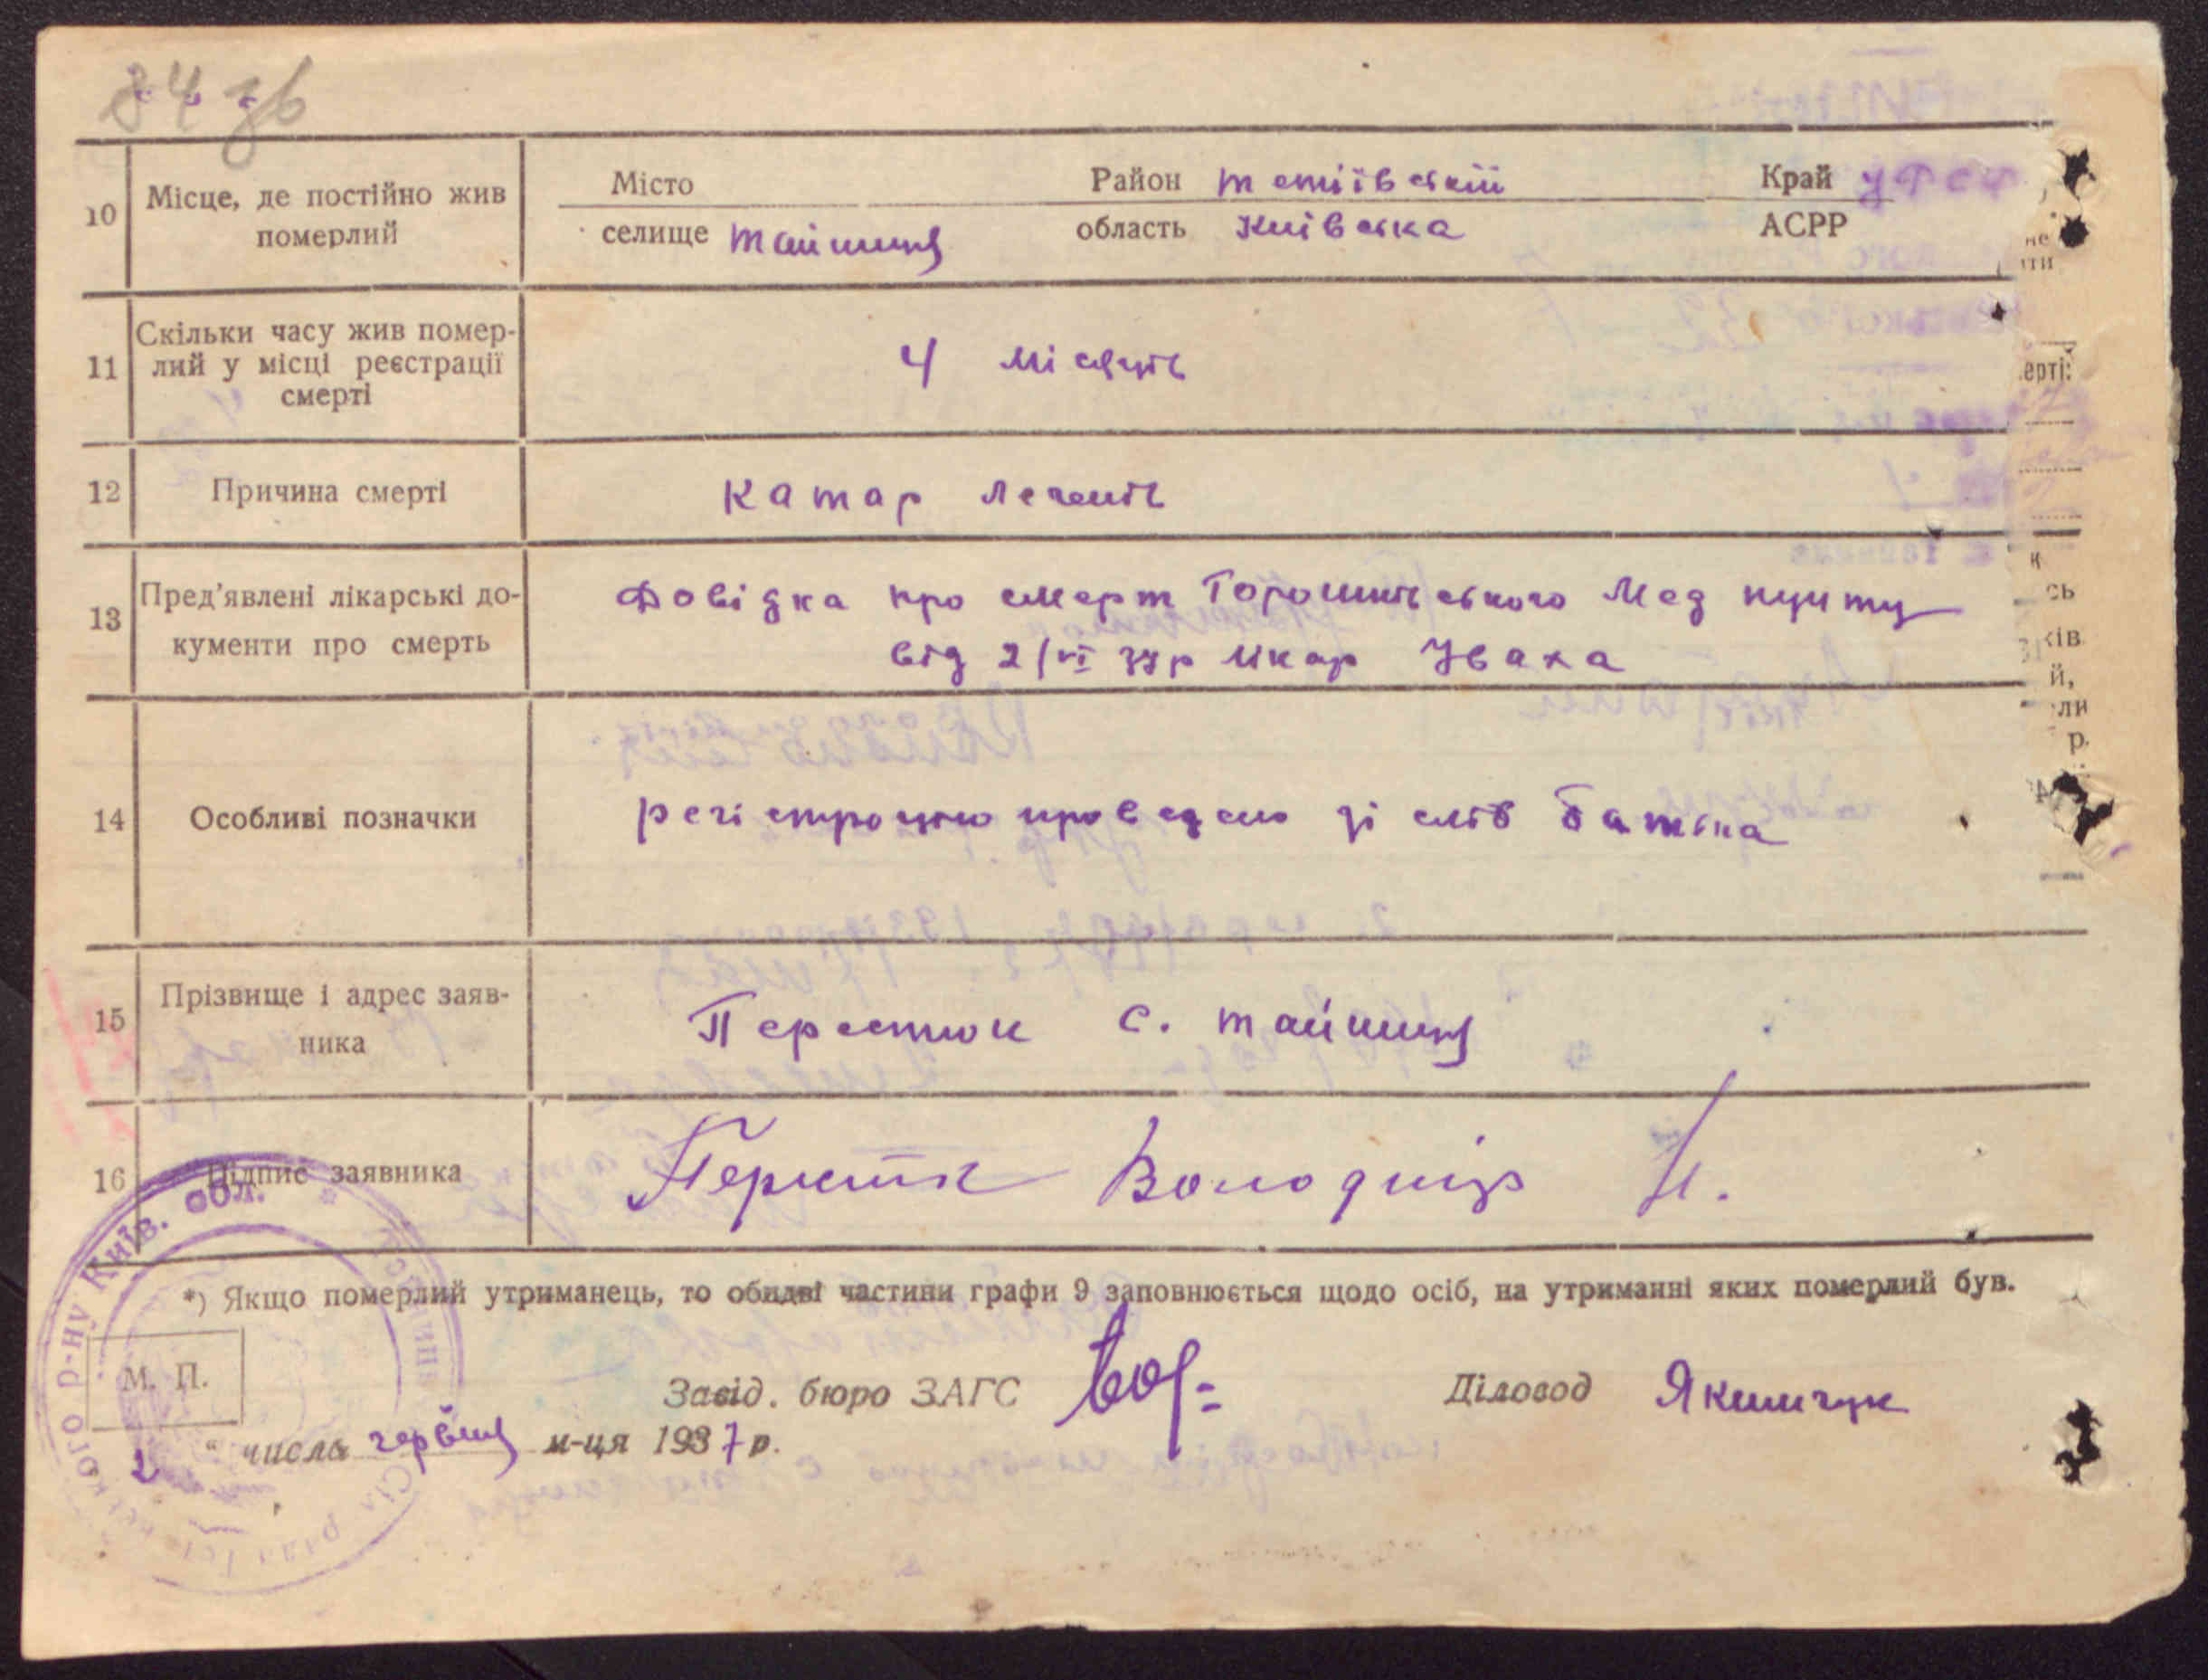 84 зв
10 Місце, де постійно жив померлий
Місто Район тетіївський Край УРСР
селище тайниця область Київська АСРР
11 Скільки часу жив помер-
лий у місці реєстрації
смерті
4 місяць
12 Причина смерті Катар легень
13 Пред'явлені лікарські до-
кументи про смерть
Довідка про смерт Горошківського Мед пункту
від 2/VI 37р лікар
14 Особливі позначки
регістрацію проведено зі слів батька
15 Прізвище і адрес заяв-
ника
Перестюк с. тайниця
16 Підпис заявника
Володимір
*) Якщо померлий утриманець, то обидві частини графи 9 заповнюється щодо осіб, на утриманні яких померлий був.
М. П.
Завід. бюро ЗАГС Діловод Якимчук
2 " числа червня м-ця 1937 р.
р-ну Київ. обл.
ерті:
сь
ків
й,
ли
р.